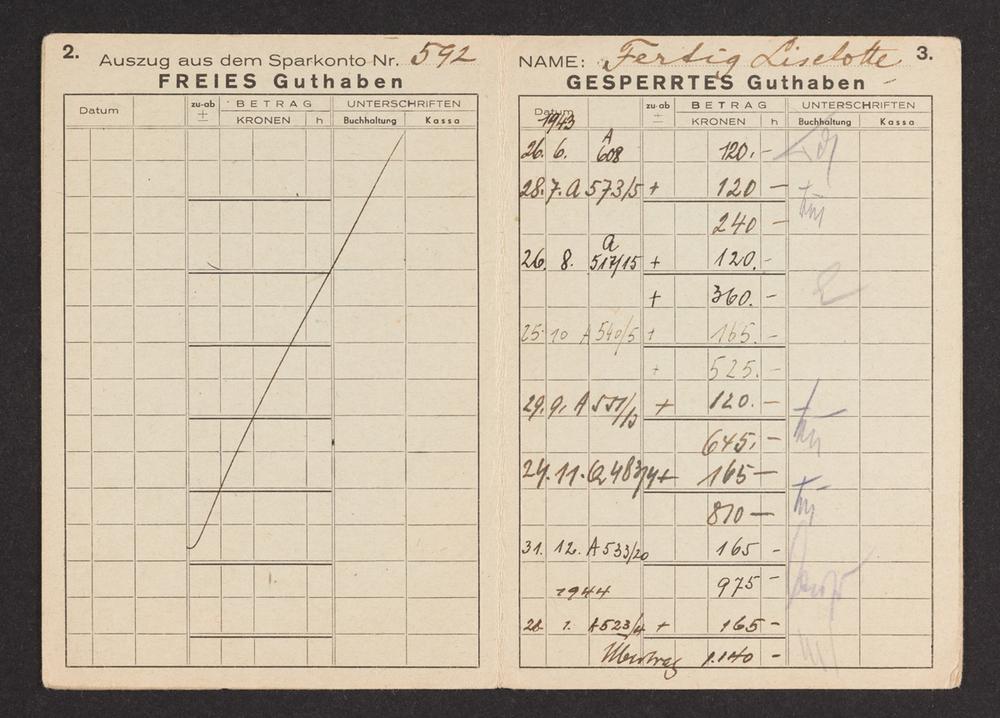 2.
Auszug aus dem Sparkonto Nr. 592
FREIES Guthaben
Datum zu-ab ± BETRAG UNTERSCHRIFTEN
KRONEN h Buchhaltung Kassa
3.
NAME: Fertig Liselotte
GESPERRTES Guthaben
Datum zu-ab ± BETRAG UNTERSCHRIFTEN
KRONEN h Buchhaltung Kassa
1943
26. 6. A 608 120.-
28. 7. A 573/5 + 120 -
240 -
26. 8. A 517/15 + 120.-
+ 360.-
25. 10 A 540/5 + 165.-
+ 525.-
29. 9. A 551/3 + 120.-
645.-
24. 11. A 483/4 + 165 -
810 -
31. 12. A 533/20 165 -
975 -
1944
28. 1. A 523/4 + 165 -
Übertrag 1.140 -